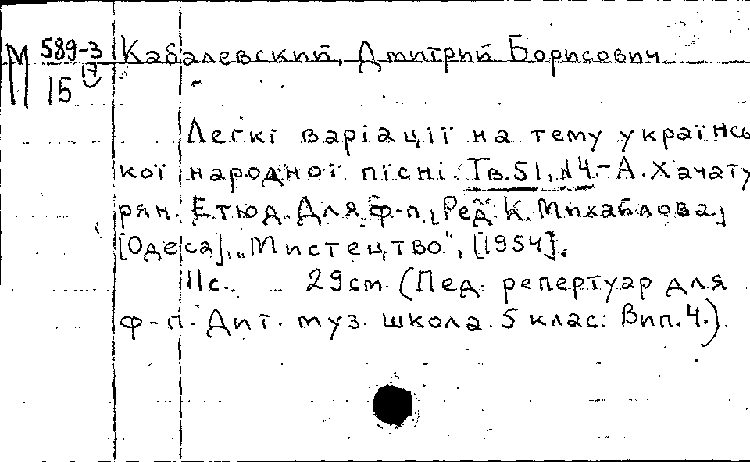 М 589-3 Кабалевский, Дмитрий Борисович
15
Легкі варіації на тему українсь
кої народної пісні. Тв.51, №4.-А.Хачату
рян. Етюд. Для ф-п., Ред. К. Михайлова.,
[Одеса], „Мистецтво", [1954].
11с. 29cm (Пед. репертуар для
ф-п. Дит. муз. школа. 5 клас. Вип. 4.)